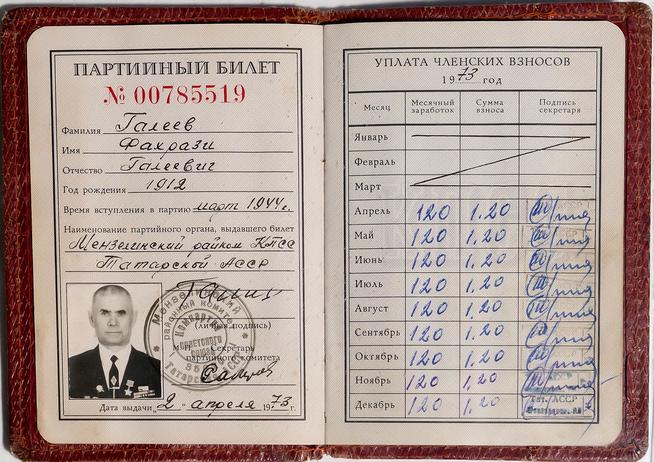 ПАРТИЙНЫЙ БИЛЕТ
№ 00785519
Фамилия Галеев
Имя Фахрази
Отчество Галеевич
Год рождения 1912
Время вступления в партию март 1944 г.
Наименование партийного органа, выдавшего билет
Мензелинский райком КПСС
Татарской АССР
(личная подпись)
М.П. Секретарь
партийного комитета
Дата выдачи „2“ апреля 1973 г.
УПЛАТА ЧЛЕНСКИХ ВЗНОСОВ
1973 год
Месяц Месячный заработок Сумма взноса Подпись секретаря
Январь
Февраль
Март
Апрель 120 1.20
Май 120 1.20
Июнь 120 1.20
Июль 120 1.20
Август 120 1.20
Сентябрь 120 1.20
Октябрь 120 1.20
Ноябрь 120 1,20
Декабрь 120 1.20